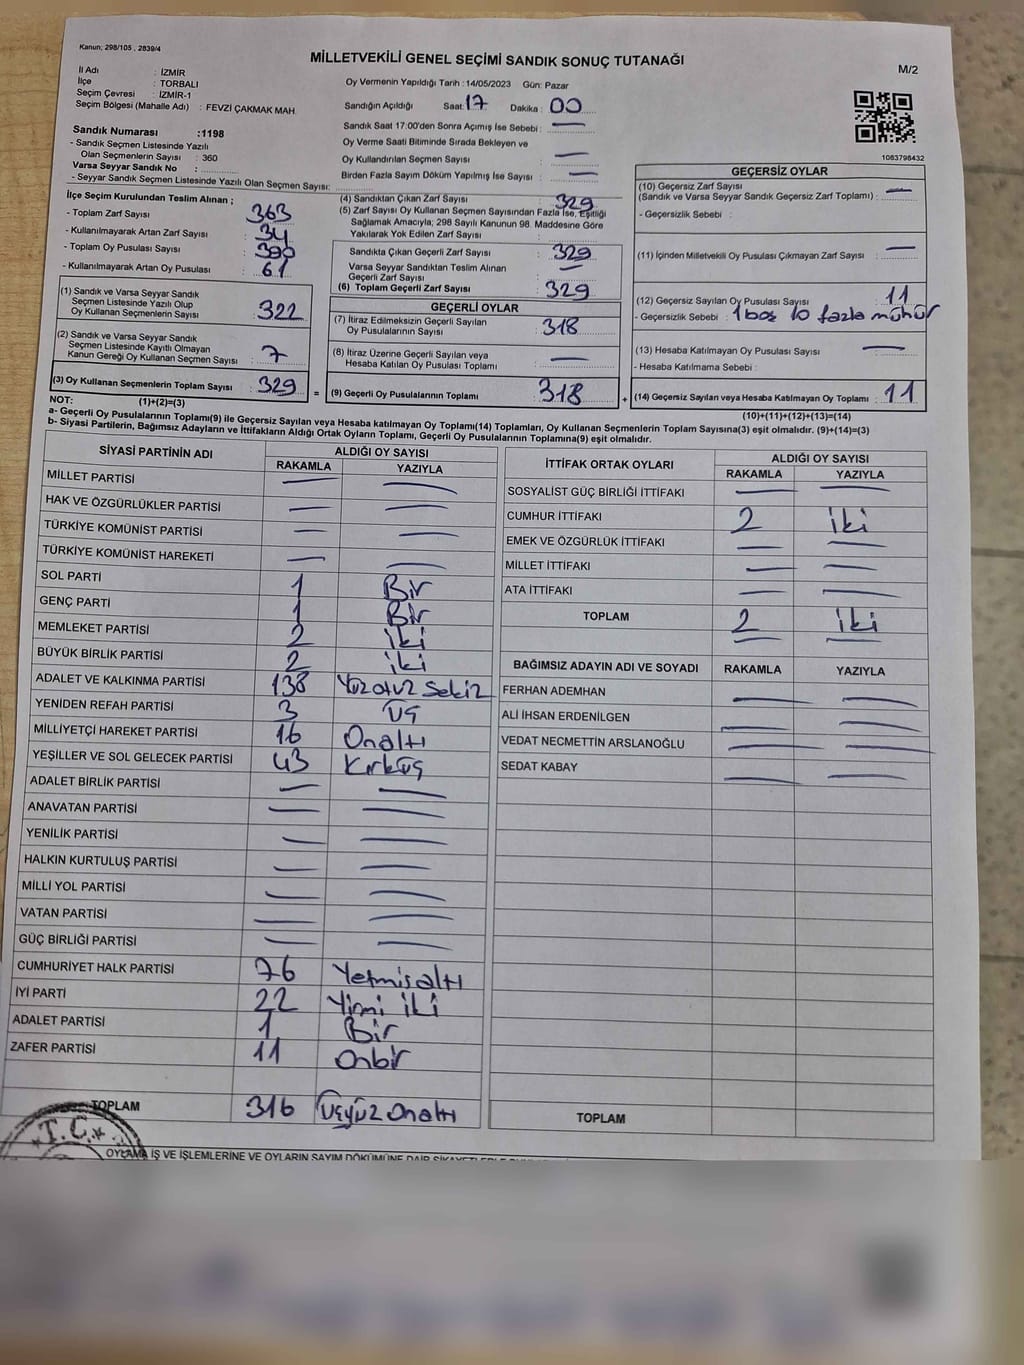 Kanun; 298/105 , 2839/4
MİLLETVEKİLİ GENEL SEÇİMİ SANDIK SONUÇ TUTANAĞI
M/2
İl Adı : İZMİR
İlçe : TORBALI
Seçim Çevresi : İZMİR-1
Seçim Bölgesi (Mahalle Adı) : FEVZİ ÇAKMAK MAH.
Sandık Numarası :1198
- Sandık Seçmen Listesinde Yazılı
Olan Seçmenlerin Sayısı : 360
Varsa Seyyar Sandık No :
- Seyyar Sandık Seçmen Listesinde Yazılı Olan Seçmen Sayısı:
Oy Vermenin Yapıldığı Tarih : 14/05/2023 Gün: Pazar
Sandığın Açıldığı Saat: 17 Dakika : 00
Sandık Saat 17:00'den Sonra Açımış İse Sebebi : —
Oy Verme Saati Bitiminde Sırada Bekleyen ve
Oy Kullandırılan Seçmen Sayısı : —
Birden Fazla Sayım Döküm Yapılmış İse Sayısı : —
1083798432
İlçe Seçim Kurulundan Teslim Alınan ;
- Toplam Zarf Sayısı : 363
- Kullanılmayarak Artan Zarf Sayısı : 34
- Toplam Oy Pusulası Sayısı : 390
- Kullanılmayarak Artan Oy Pusulası : 61
(1) Sandık ve Varsa Seyyar Sandık
Seçmen Listesinde Yazılı Olup
Oy Kullanan Seçmenlerin Sayısı : 322
(2) Sandık ve Varsa Seyyar Sandık
Seçmen Listesinde Kayıtlı Olmayan
Kanun Gereği Oy Kullanan Seçmen Sayısı : 7
(3) Oy Kullanan Seçmenlerin Toplam Sayısı : 329 =
(4) Sandıktan Çıkan Zarf Sayısı : 329
(5) Zarf Sayısı Oy Kullanan Seçmen Sayısından Fazla İse, Eşitliği
Sağlamak Amacıyla; 298 Sayılı Kanunun 98. Maddesine Göre
Yakılarak Yok Edilen Zarf Sayısı :
Sandıkta Çıkan Geçerli Zarf Sayısı : 329
Varsa Seyyar Sandıktan Teslim Alınan
Geçerli Zarf Sayısı : —
(6) Toplam Geçerli Zarf Sayısı : 329
GEÇERLİ OYLAR
(7) İtiraz Edilmeksizin Geçerli Sayılan
Oy Pusulalarının Sayısı : 318
(8) İtiraz Üzerine Geçerli Sayılan veya
Hesaba Katılan Oy Pusulası Toplamı : —
(9) Geçerli Oy Pusulalarının Toplamı : 318 +
GEÇERSİZ OYLAR
(10) Geçersiz Zarf Sayısı
(Sandık ve Varsa Seyyar Sandık Geçersiz Zarf Toplamı) : —
- Geçersizlik Sebebi :
(11) İçinden Milletvekili Oy Pusulası Çıkmayan Zarf Sayısı : —
(12) Geçersiz Sayılan Oy Pusulası Sayısı : 11
- Geçersizlik Sebebi : 1 boş 10 fazla mühür
(13) Hesaba Katılmayan Oy Pusulası Sayısı : —
- Hesaba Katılmama Sebebi :
(14) Geçersiz Sayılan veya Hesaba Katılmayan Oy Toplamı : 11
NOT: (1)+(2)=(3)
(10)+(11)+(12)+(13)=(14)
a- Geçerli Oy Pusulalarının Toplamı(9) ile Geçersiz veya Hesaba katılmayan Oy Toplamı(14) Toplamları, Oy Kullanan Seçmenlerin Toplam Sayısına(3) eşit olmalıdır. (9)+(14)=(3)
b- Siyasi Partilerin, Bağımsız Adayların ve İttifakların Aldığı Ortak Oyların Toplamı, Geçerli Oy Pusulalarının Toplamına(9) eşit olmalıdır.
SİYASİ PARTİNİN ADI ALDIĞI OY SAYISI
RAKAMLA YAZIYLA
MİLLET PARTİSİ — —
HAK VE ÖZGÜRLÜKLER PARTİSİ — —
TÜRKİYE KOMÜNİST PARTİSİ — —
TÜRKİYE KOMÜNİST HAREKETİ — —
SOL PARTİ 1 Bir
GENÇ PARTİ 1 Bir
MEMLEKET PARTİSİ 2 iki
BÜYÜK BİRLİK PARTİSİ 2 iki
ADALET VE KALKINMA PARTİSİ 138 Yüzotuz sekiz
YENİDEN REFAH PARTİSİ 3 üç
MİLLİYETÇİ HAREKET PARTİSİ 16 Onaltı
YEŞİLLER VE SOL GELECEK PARTİSİ 43 Kırküç
ADALET BİRLİK PARTİSİ — —
ANAVATAN PARTİSİ — —
YENİLİK PARTİSİ — —
HALKIN KURTULUŞ PARTİSİ — —
MİLLİ YOL PARTİSİ — —
VATAN PARTİSİ — —
GÜÇ BİRLİĞİ PARTİSİ — —
CUMHURİYET HALK PARTİSİ 76 Yetmişaltı
İYİ PARTİ 22 Yirmi iki
ADALET PARTİSİ 1 Bir
ZAFER PARTİSİ 11 Onbir
TOPLAM 316 Üçyüz Onaltı
İTTİFAK ORTAK OYLARI ALDIĞI OY SAYISI
RAKAMLA YAZIYLA
SOSYALİST GÜÇ BİRLİĞİ İTTİFAKI — —
CUMHUR İTTİFAKI 2 iki
EMEK VE ÖZGÜRLÜK İTTİFAKI — —
MİLLET İTTİFAKI — —
ATA İTTİFAKI — —
TOPLAM 2 iki
BAĞIMSIZ ADAYIN ADI VE SOYADI RAKAMLA YAZIYLA
FERHAN ADEMHAN — —
ALİ İHSAN ERDENİLGEN — —
VEDAT NECMETTİN ARSLANOĞLU — —
SEDAT KABAY — —
TOPLAM
T.C.
OYLAMA İŞ VE İŞLEMLERİNE VE OYLARIN SAYIM DÖKÜMÜNE DAİR